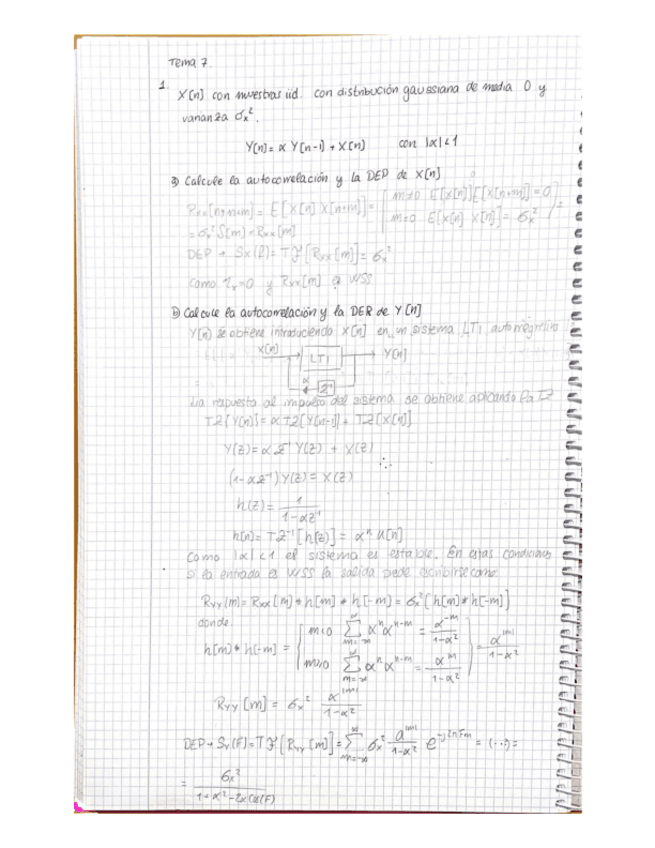 Tema 7.
1. X[n] con muestras iid. con distribución gaussiana de media 0 y
varianza σx².
Y[n] = α Y[n-1] + X[n] con |α| < 1
a) Calcule la autocorrelación y la DEP de X[n]
= E[X[n] X[n+m]] = { m≠0 E[X[n]] E[X[n+m]] = 0
m=0 E[X[n] X[n]] = σx² } =
= σx² δ[m] = Rxx[m]
DEP → Sx(f) = TF[Rxx[m]] = σx²
Como ηx=0 y Rxx[m] es WSS
b) Calcule la autocorrelación y la DEP de Y[n]
Y[n] se obtiene introduciendo X[n] en un sistema LTI autorregresivo
X[n] LTI Y[n]
α z⁻¹
La respuesta al impulso del sistema se obtiene aplicando la TZ
TZ{Y[n]} = α TZ[Y[n-1]] + TZ[X[n]]
Y(z) = α z⁻¹ Y(z) + X(z)
(1-αz⁻¹) Y(z) = X(z)
h(z) = 1 / (1-αz⁻¹)
h[n] = TZ⁻¹[h(z)] = αⁿ u[n]
Como |α| < 1 el sistema es estable. En estas condiciones
si la entrada es WSS la salida puede escribirse como:
Ryy[m] = Rxx[m] * h[m] * h[-m] = σx² [h[m] * h[-m]]
donde:
h[m] * h[-m] = { m<0 Σ αⁿ αⁿ⁻ᵐ = α⁻ᵐ / (1-α²)
m≥0 Σ αⁿ αⁿ⁻ᵐ = αᵐ / (1-α²) } = α^|m| / (1-α²)
Ryy[m] = σx² α^|m| / (1-α²)
DEP → Sy(F) = TF[Ryy[m]] = Σ σx² α^|m| / (1-α²) e^(-j2πFm) = (...) =
= σx² / (1+α²-2α cos(F))